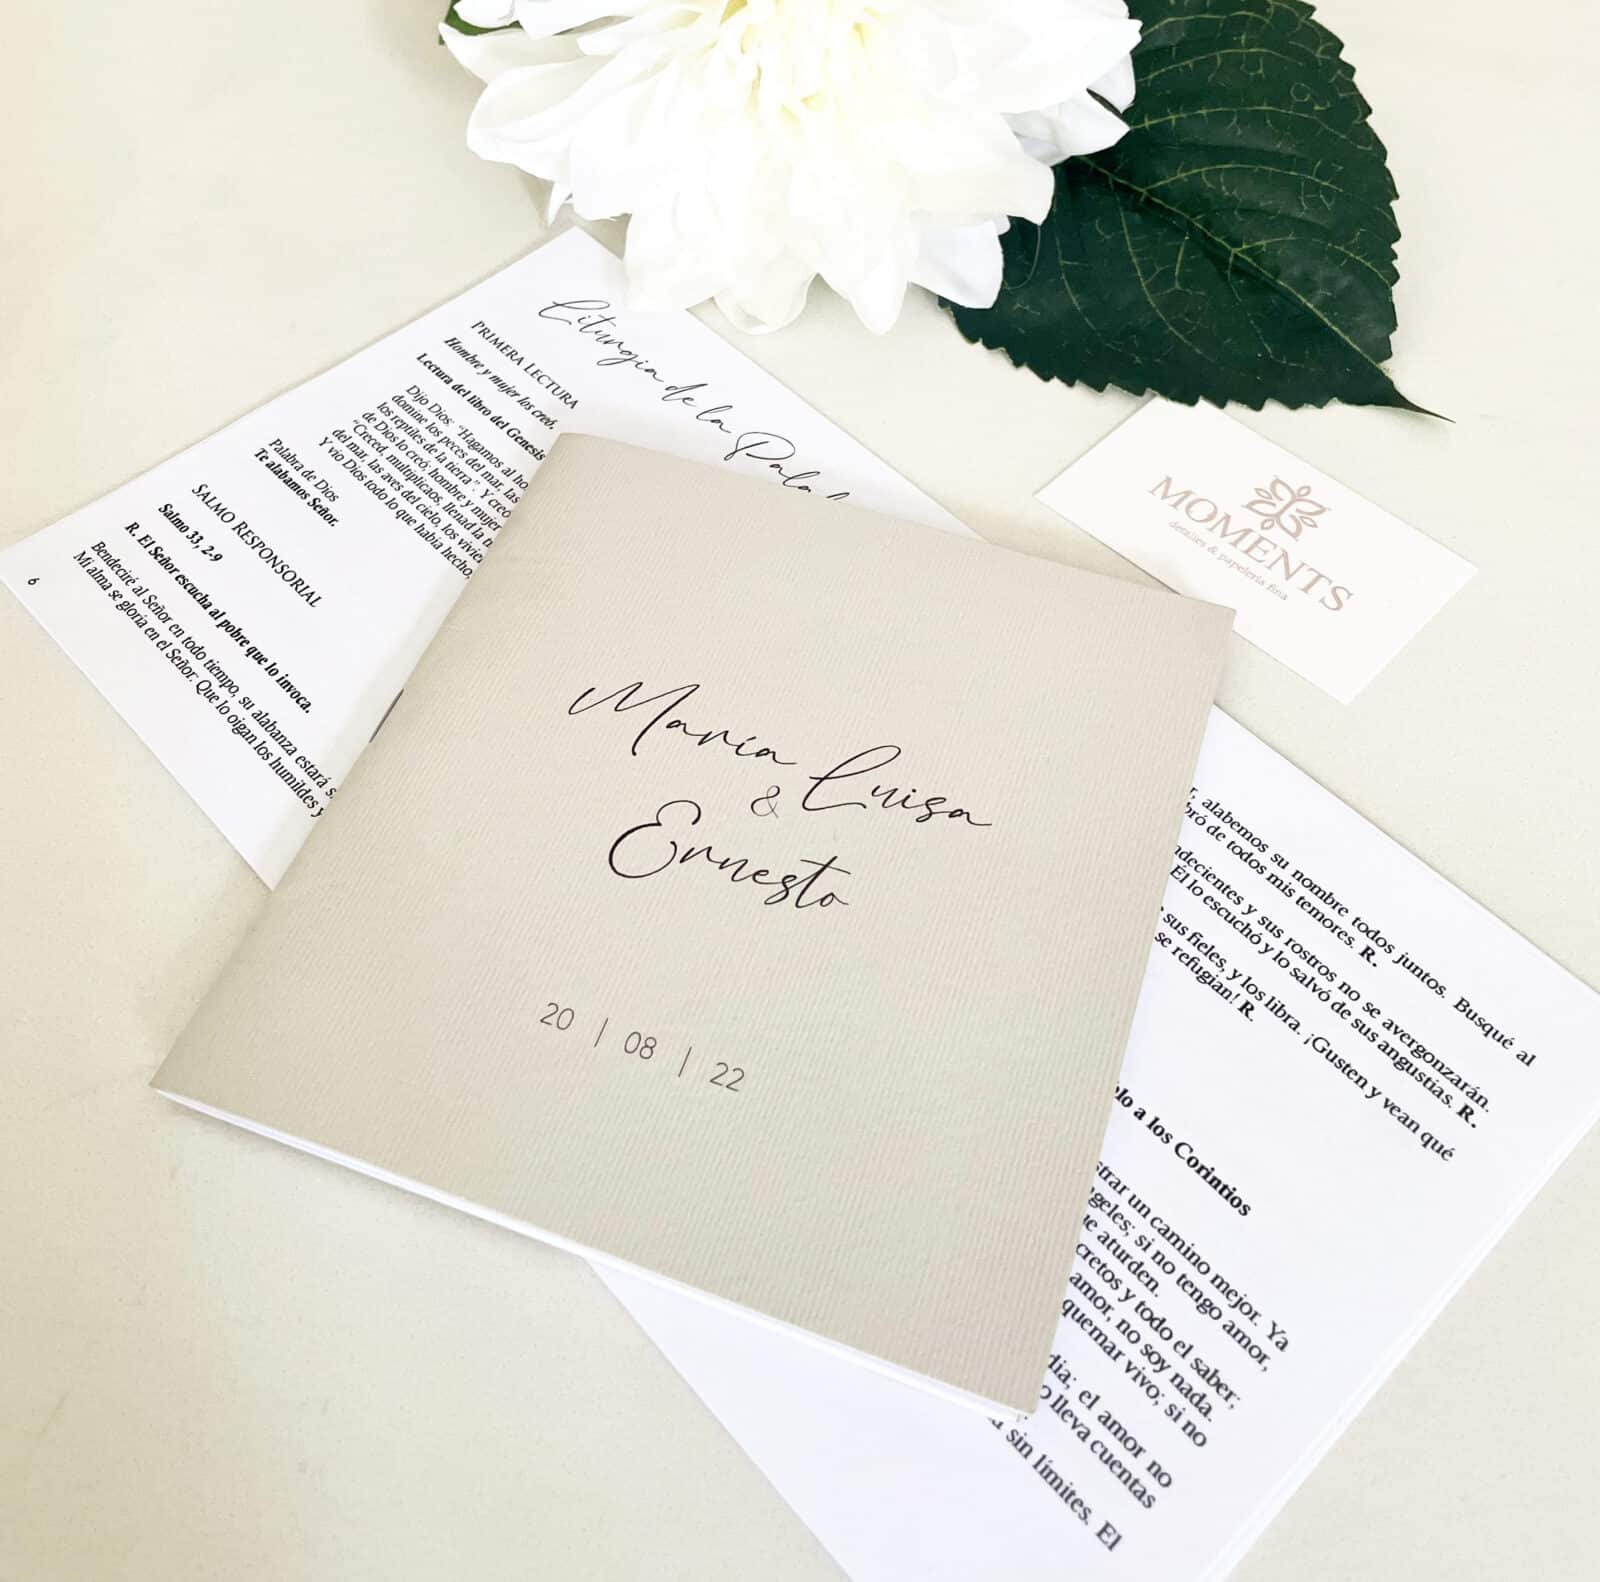 Liturgia de la
PRIMERA LECTURA
Hombre y mujer los creó.
Lectura del libro del Genesis
Dijo Dios: "Hagamos al
domine los peces del mar, las
los reptiles de la tierra". Y creó
de Dios lo creó; hombre y mujer
"Creced, multiplicaos, llenad la
del mar, las aves del cielo, los
Y vio Dios todo lo que había hecho,
Palabra de Dios
Te alabamos Señor.
SALMO RESPONSORIAL
Salmo 33, 2-9
R. El Señor escucha al pobre que lo invoca.
Bendeciré al Señor en todo tiempo, su alabanza estará
Mi alma se gloría en el Señor. Que lo oigan los humildes y
6
María Luisa
&
Ernesto
20 | 08 | 22
MOMENTS
detalles & papelería fina
alabemos su nombre todos juntos. Busqué al
de todos mis temores. R.
y sus rostros no se avergonzarán.
Él lo escuchó y lo salvó de sus angustias. R.
sus fieles, y los libra. ¡Gusten y vean qué
se refugian! R.
a los Corintios
un camino mejor. Ya
si no tengo amor,
aturden.
y todo el saber;
amor, no soy nada.
quemar vivo; si no
el amor no
lleva cuentas
sin límites. El